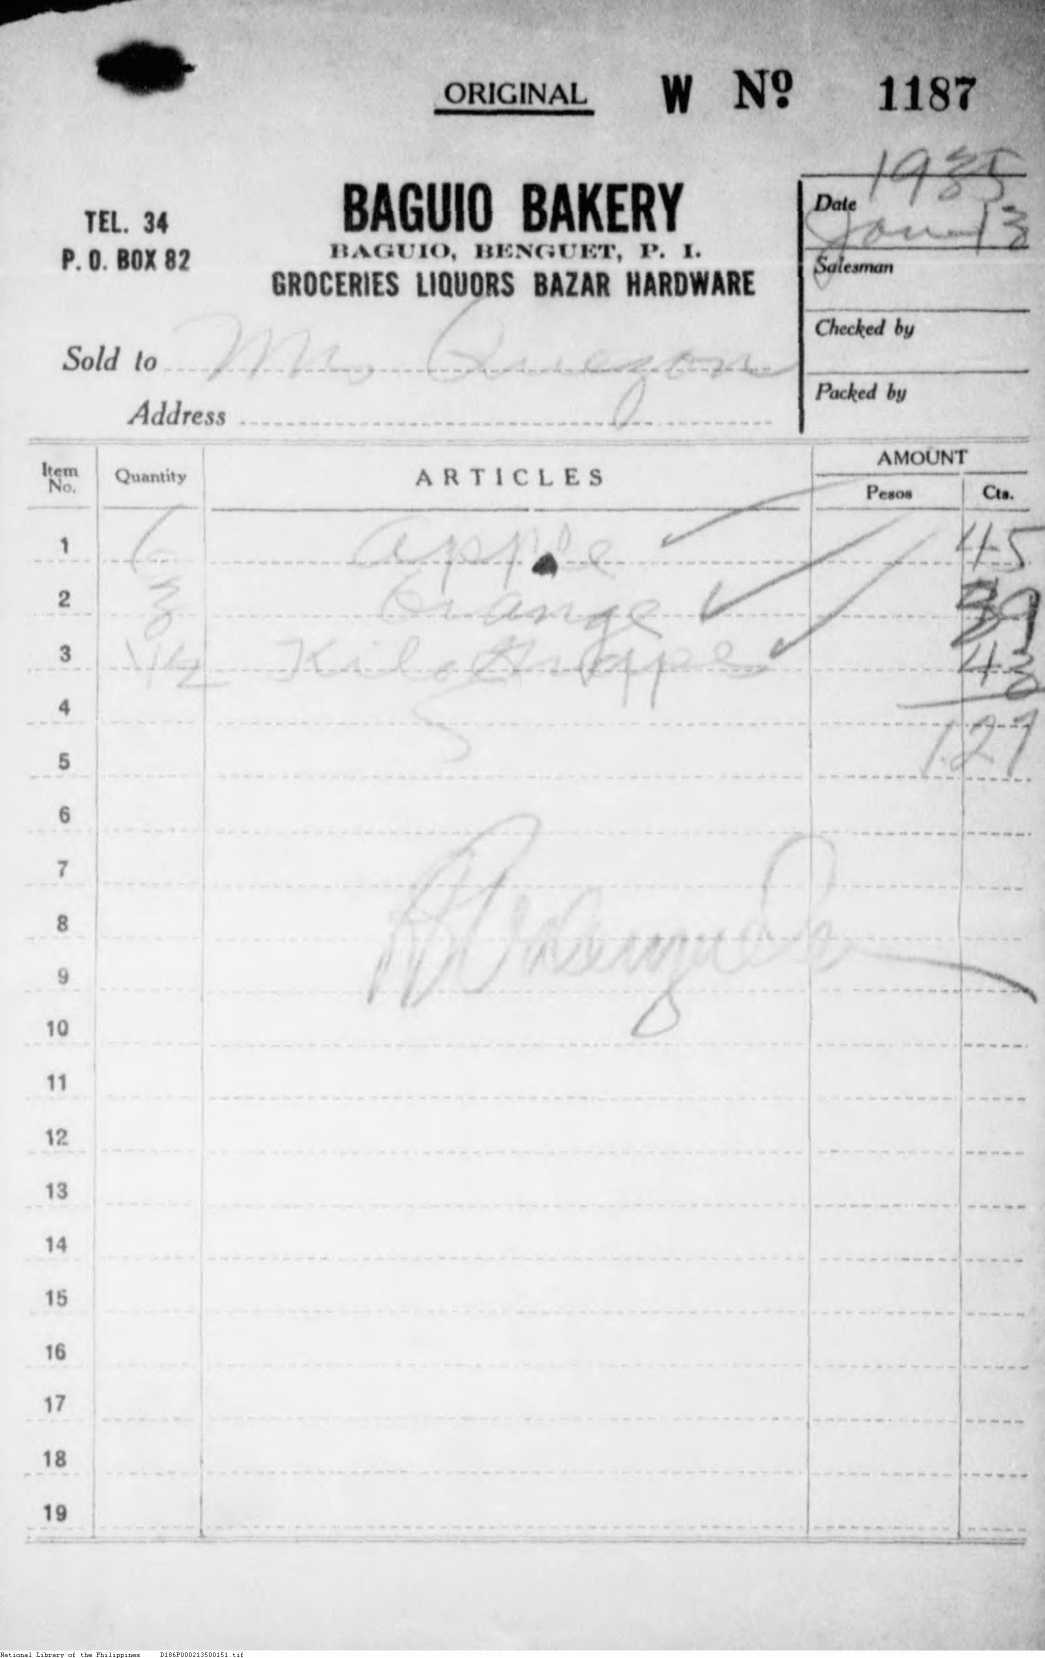 ORIGINAL W Nº 1187
1935
TEL. 34
P. O. BOX 82
BAGUIO BAKERY
BAGUIO, BENGUET, P. I.
GROCERIES LIQUORS BAZAR HARDWARE
Date Jan 13
Salesman
Checked by
Packed by
Sold to Mr. Quezon
Address
Item No. Quantity ARTICLES AMOUNT
Pesos Cts.
1 6 apple 45
2 3 Orange 39
3 1/2 Kilo 43
4
5 1.27
6
7
8
9
10
11
12
13
14
15
16
17
18
19
National Library of the Philippines D186P000213500151.tif